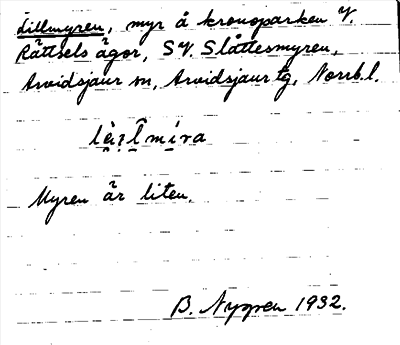 Lillmyren, myr å kronoparken V.
Rättsels ägor, SV. Slåttesmyren,
Arvidsjaur sn, Arvidsjaur tg, Norrb. l.
Myren är liten.
B. Nygren 1932.